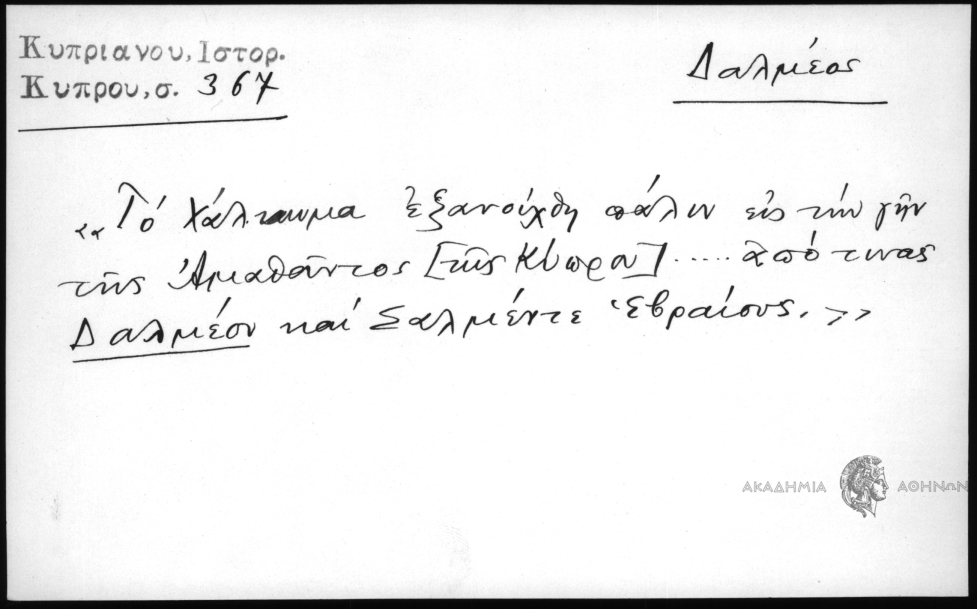 Κυπριανου, Ιστορ.
Κυπρου, σ. 367
Δαλμέος
«Τό Χάλκωμα ἐξανοίχθη πάλιν εἰς τήν γῆν
τῆς Ἀμαθοῦντος [τῆς Κύπρου] ..... ἀπό τινας
Δαλμέον καί Σαλμέντε Ἑβραίους.»
ΑΚΑΔΗΜΙΑ ΑΘΗΝΩΝ